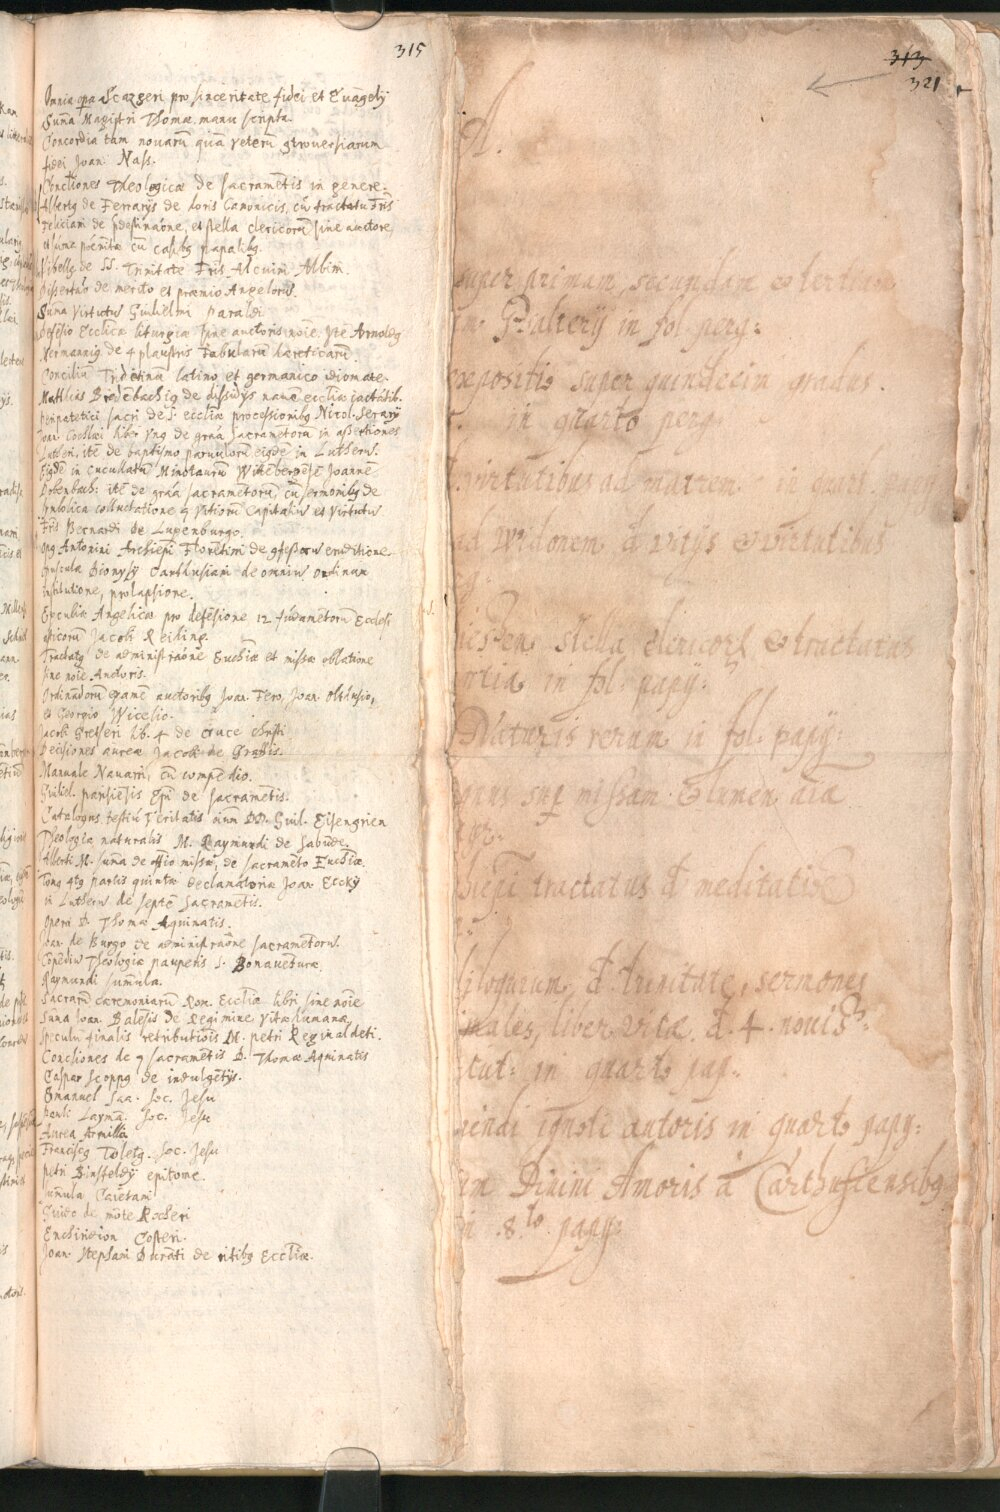 315
Omnia opa Scazgeri pro sinceritate fidei et Euāgely
Suma Magistri Thomæ manu scripta.
Concordia tam novarū quā veterū gtroversiarum
fidei Joan. Nass.
Conctiones Theologicæ de sacramētis in genere.
Albertg de Ferrarys de horis Canonicis, cū tractatu Fris
Feliciani de pdestinatione, et stella clericorū sine auctore
et suma pœnitæ cū casibg papalibg.
Libellg de SS. Trinitate Fris Alcuini Albini.
Dissertão de merito et præmio Angelorū.
Suma virtutus Guilielmi Paraldi
Defēsio Ecclicæ liturgiæ sine auctoris noīe. Itē Arnoldg
Mermannig de 4 plaustris Fabularū hæreticarū
Conciliū Tridētinū latino et germanico idiomate.
Mathias Bredebachig de dissidys navæ eccliæ iactātib.
Peripatetici sacri de S. eccliæ processionibg Nicol. Serary
Joan. Cochlæi lib. vng de grāa sacrametorū in assertiones
Lutheri, itē de baptismo parvulorū eigdē in Lutherū.
Eigdē in cucullatū Minotaurū Witēbergēsē Joannē
Dobenbach: itē de grāa sacrametorū, cū sermonibg de
symbolica colluctatione 9 vitiorū capitaliū et virtutū
Fris Bernardi de Luxenburgo.
Opg Antonini Archiepi Floretini de gfessorū eruditione
Opuscula Dionysy Carthusiani de omniū ordinum
institutione, prolapsione.
Excubiæ Angelicæ pro defēsione 12 fūdametorū Ecclesi
asticorū Jacobi Reiling.
Tractatg de administrāone Euchiæ et missæ oblatione
sine noīe Auctoris.
Ordinādorū examē auctoribg Joan. Fero, Joan. Olthusio,
et Georgio Wicelio.
Jacobi Gretseri lib. 4 de cruce christi
Decisiones aureæ Jacobi de Graffis.
Manuale Navarri, cū compēdio.
Guiliel. parisiēsis Epi de sacrametis.
Catalogus testiū veritatis oium DD. Guil. Eisengrien
Theologia naturalis M. Raymundi de Sabūde.
Alberti M. suma de offio missæ, de sacrameto Euchiæ.
Tomg 4tg partis quintæ declamatoriæ Joan. Ecky
in Lutherū de septē sacrametis.
Opera D. Thomæ Aquinatis.
Joan. de Burgo de administrāone sacrametorū.
Copēdiū Theologiæ pauperis S. Bonaveturæ.
Raymundi sumula.
Sacrarū cæremoniarū Rom. Eccliæ libri sine noīe
Suma Joan. Balesis de Regimine vitæ humanæ,
Speculū finalis retributiōis M. petri Reginaldeti.
Concsiones de 9 sacrametis D. Thomæ Aquinatis
Caspar Scoppg de indulgētys.
Emanuel Saa. Soc. Jesu
Pauli Layma. Soc. Jesu
Aurea Armilla
Franciscg Toletg. Soc. Jesu
petri Binsfeldy epitome.
Sumula Caietani
Guido de mōte Rocheri
Enchiridion Costeri.
Joan. Stephani Durāti de ritibg Eccliæ.
313
321
A.
super primam, secundam & tertiam
Psaltery in fol perg:
expositio super quindecim gradus.
in quarto perg.
virtutibus ad matrem in quart. papy
ad Widonem đ vitijs & virtutibus
stella clericorū & tractatus
in fol. papy:
Naturis rerum in fol: papy:
missam & lumen aīæ
tractatus đ meditatiōē
iloquium đ trinitate, sermones
nales, liber vitæ đ. 4. noviss:
cut: in quarto pap:
endi ignoti autoris in quarto papy:
im Divini Amoris à Carthusiensibg
in 8.to papy: